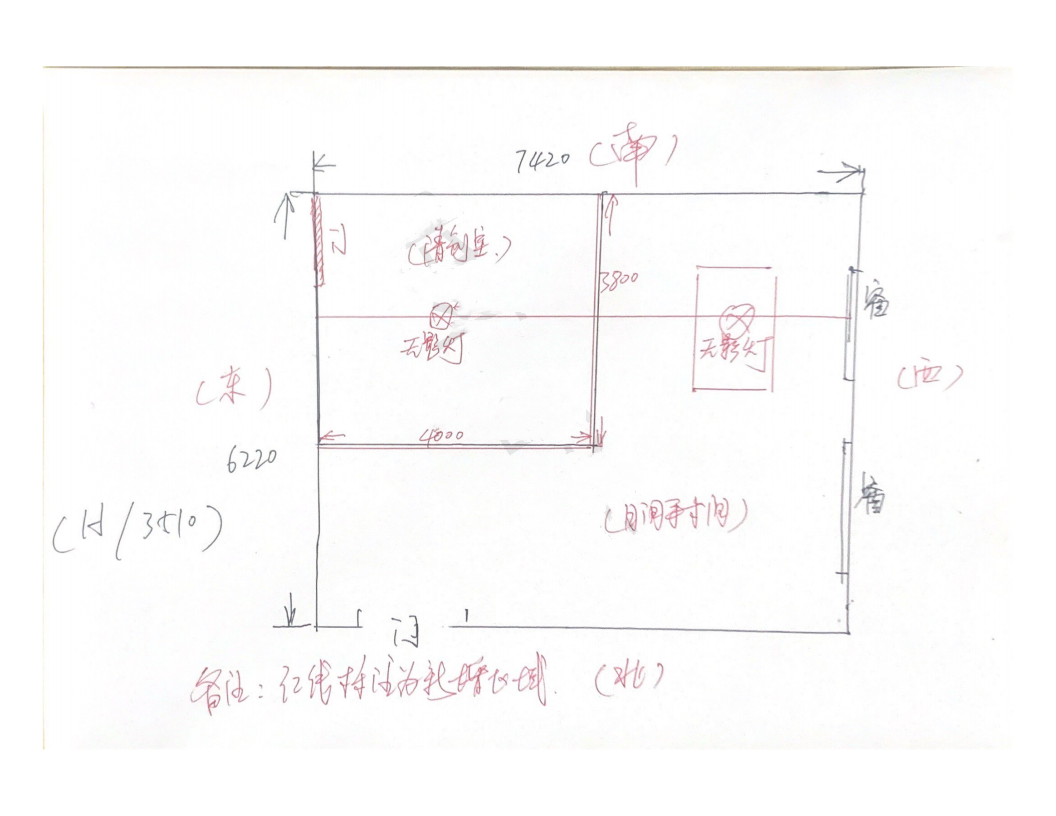 7420 (南)
(清创室)
门
3800
窗
无影灯
无影灯
(东)
(西)
4000
6220
窗
(H/3510)
(日间手术间)
门
备注:红线标注为新增区域. (北)